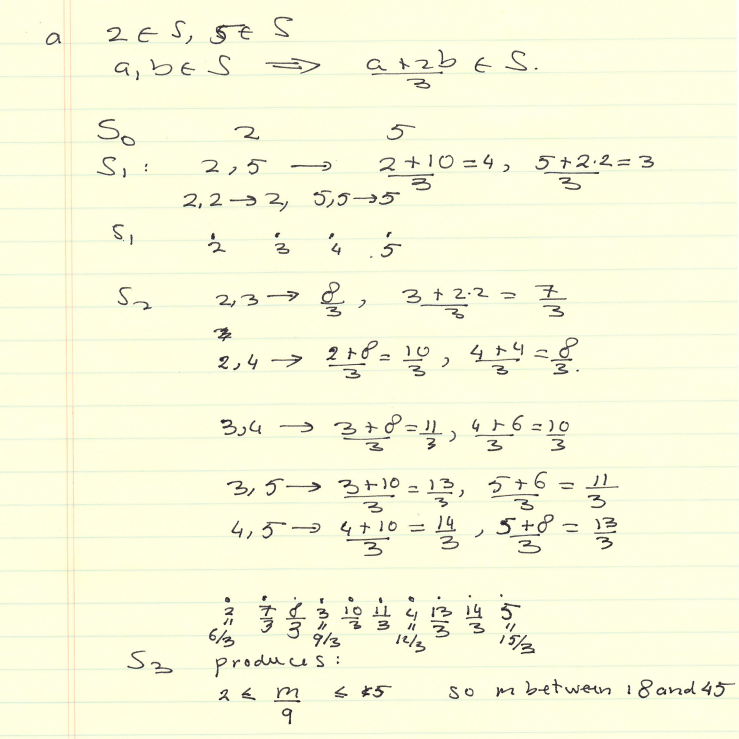 a 2 ∈ S, 5 ∈ S
a, b ∈ S ⟹ (a+2b)/3 ∈ S.
S₀ 2 5
S₁: 2,5 → (2+10)/3 = 4, (5+2·2)/3 = 3
2,2 → 2, 5,5 → 5
S₁ 2 3 4 .5
S₂ 2,3 → 8/3, (3+2·2)/3 = 7/3
2,4 → (2+8)/3 = 10/3, (4+4)/3 = 8/3.
3,4 → (3+8)/3 = 11/3, (4+6)/3 = 10/3
3,5 → (3+10)/3 = 13/3, (5+6)/3 = 11/3
4,5 → (4+10)/3 = 14/3, (5+8)/3 = 13/3
2 7/3 8/3 3 10/3 11/3 4 13/3 14/3 5
" " " "
6/3 9/3 12/3 15/3
S₃ produces:
2 ≤ m/9 ≤ 5 so m between 18 and 45